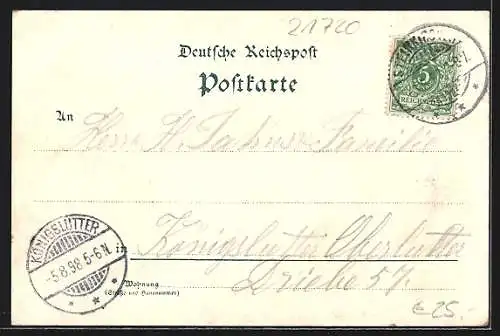 21720
Deutsche Reichspost
Postkarte
5
REICHSPOST
An
Herr H. Familie
KÖNIGSLUTTER
-5.8.98.5-6N.
in Königslutter Oberlutter
Wohnung
(Straße und Hausnummer)
Driebe 57
€ 25.